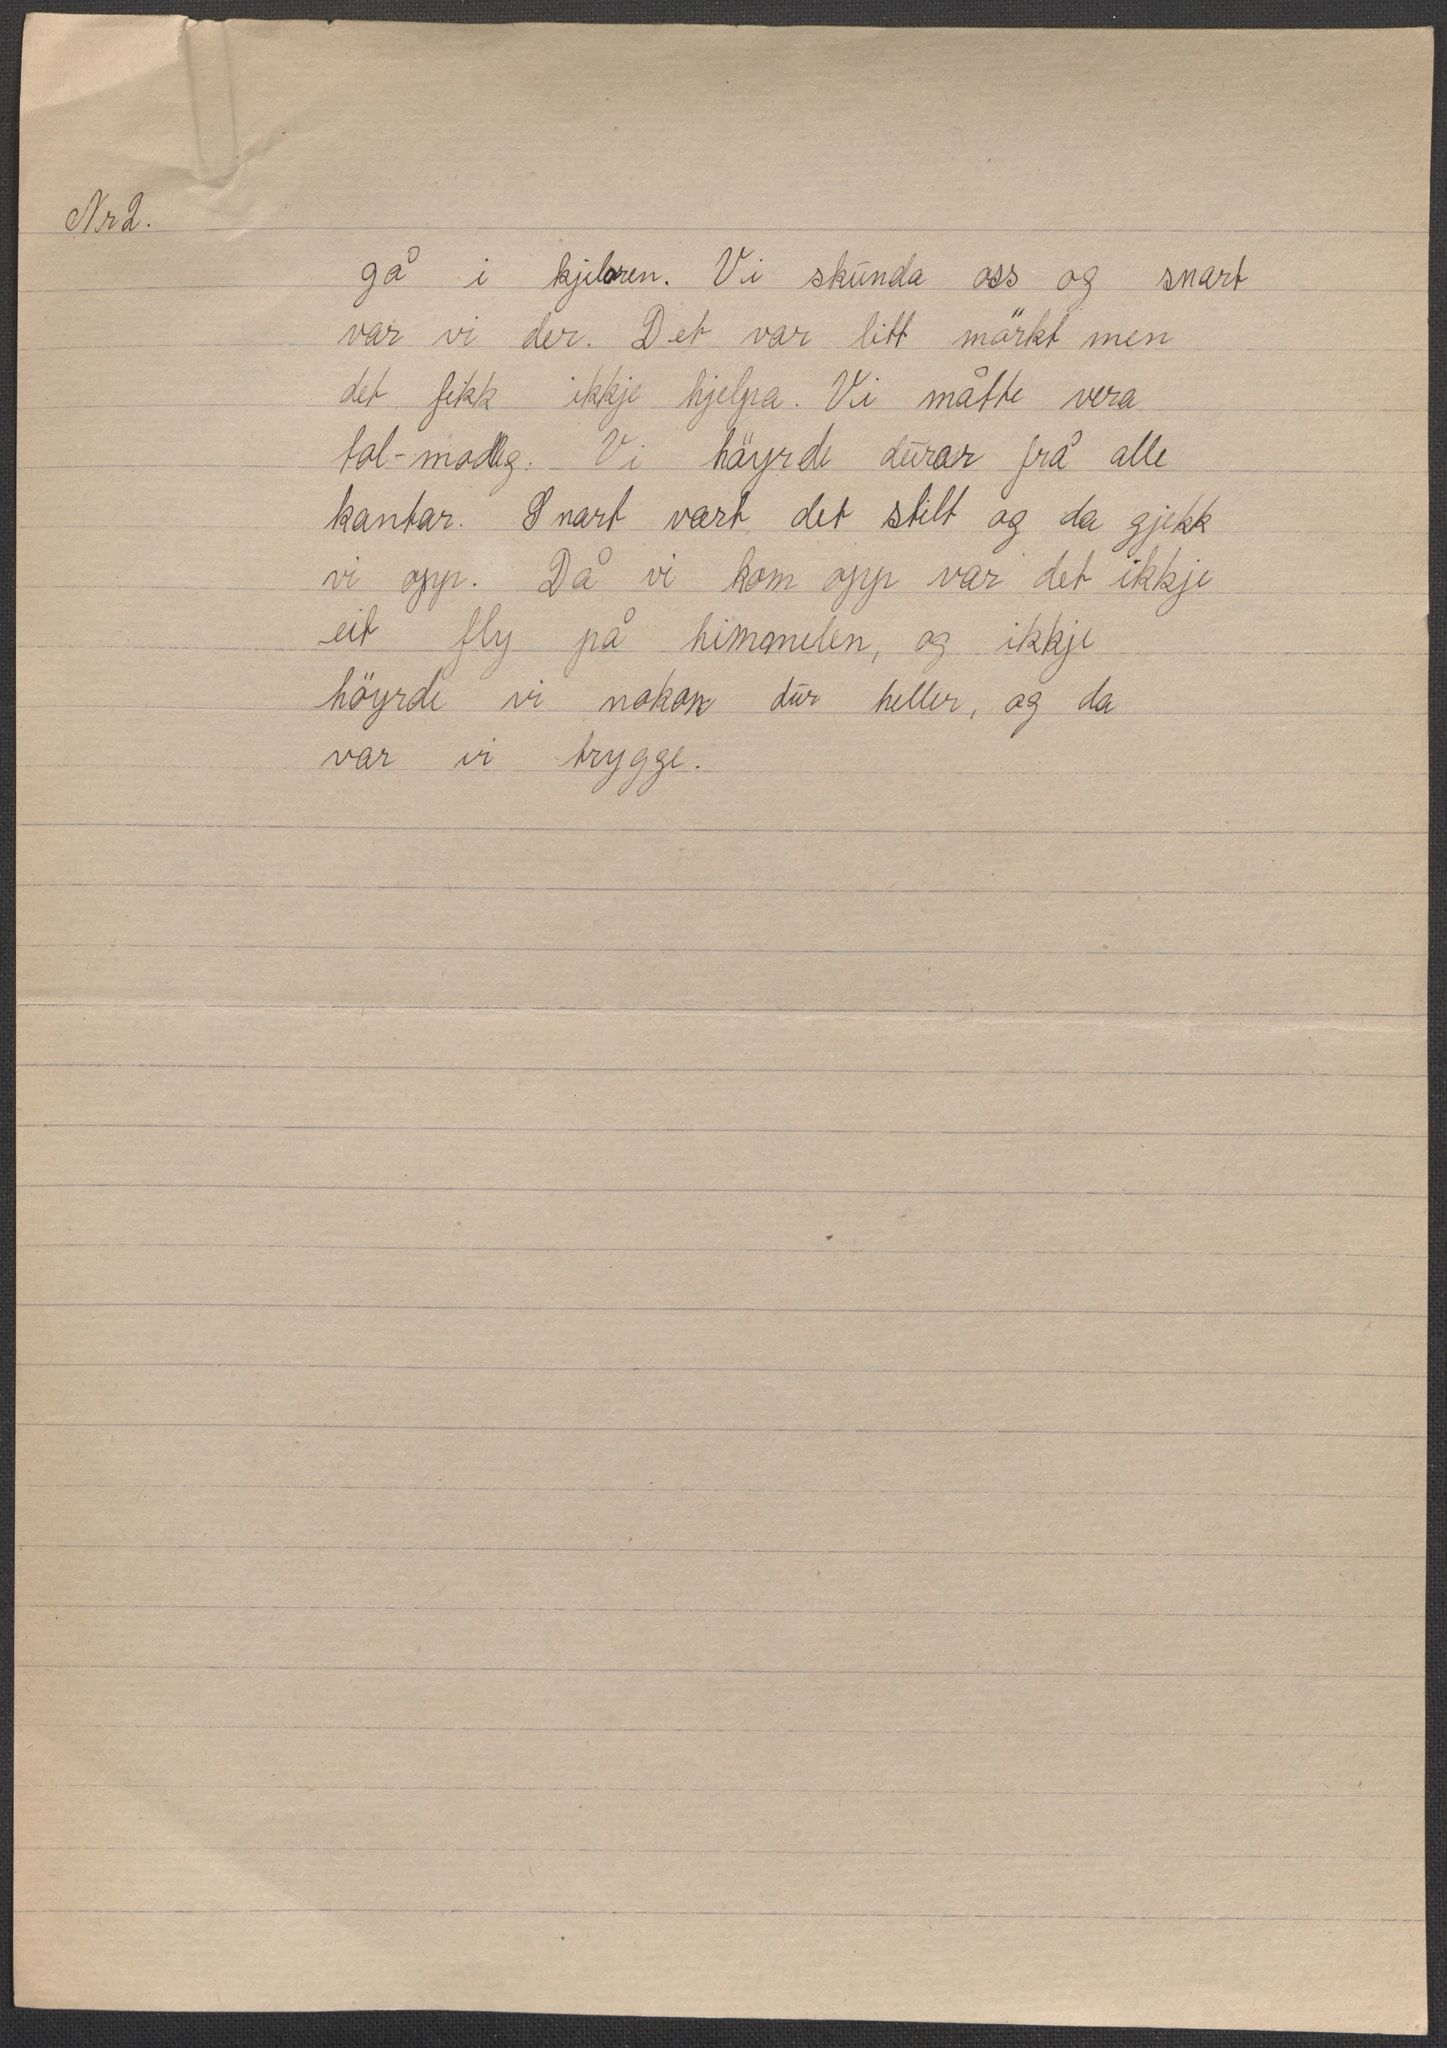 Nr 2.
gå i kjelaren. Vi skunda oss og snart
var vi der. Det var litt mörkt men
det fekk ikkje hjelpa. Vi måtte vera
tol-modeg. Vi höyrde durar frå alle
kantar. Snart vart det stilt og da gjekk
vi opp. Då vi kom opp var det ikkje
eit fly på himmelen, og ikkje
höyrde vi nokon dur heller, og da
var vi trygge.